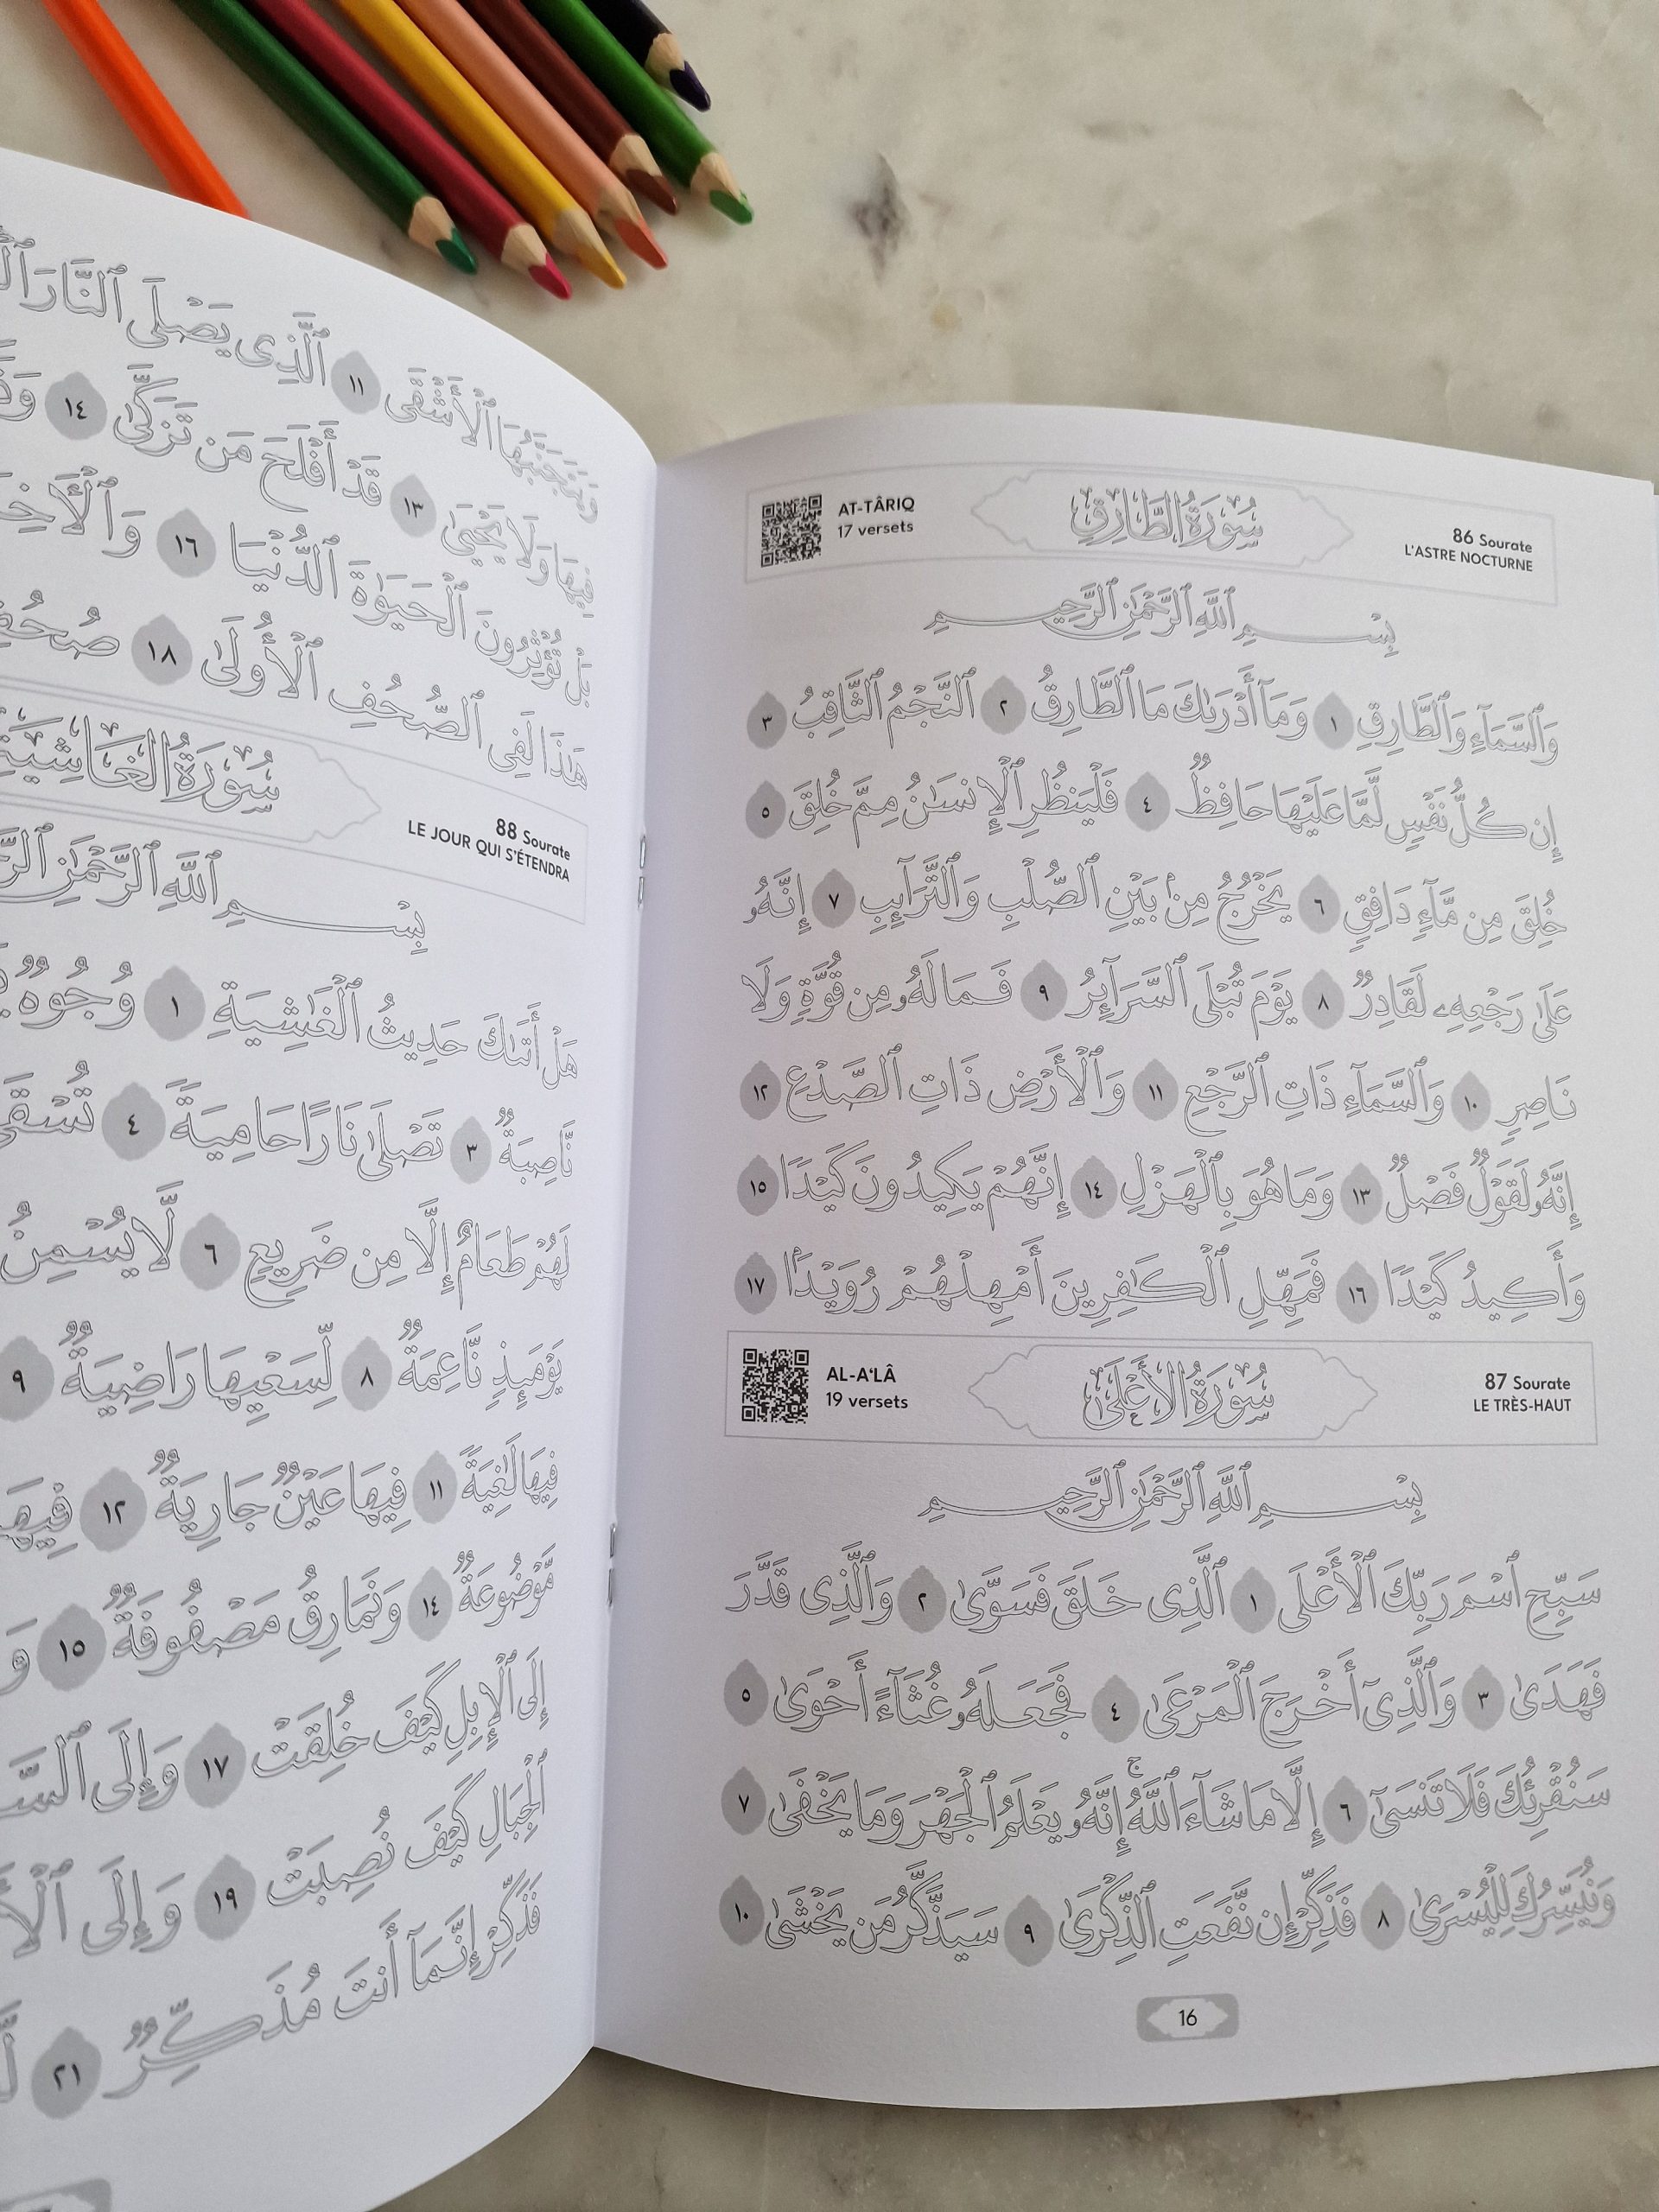 86 Sourate
L'ASTRE NOCTURNE
سُورَةُ الطَّارِقِ
AT-TÂRIQ
17 versets
بِسْمِ ٱللَّهِ ٱلرَّحْمَٰنِ ٱلرَّحِيمِ
وَٱلسَّمَآءِ وَٱلطَّارِقِ ١ وَمَآ أَدْرَىٰكَ مَا ٱلطَّارِقُ ٢ ٱلنَّجْمُ ٱلثَّاقِبُ ٣
إِن كُلُّ نَفْسٍ لَّمَّا عَلَيْهَا حَافِظٌ ٤ فَلْيَنظُرِ ٱلْإِنسَٰنُ مِمَّ خُلِقَ ٥
خُلِقَ مِن مَّآءٍ دَافِقٍ ٦ يَخْرُجُ مِنۢ بَيْنِ ٱلصُّلْبِ وَٱلتَّرَآئِبِ ٧ إِنَّهُۥ
عَلَىٰ رَجْعِهِۦ لَقَادِرٌ ٨ يَوْمَ تُبْلَى ٱلسَّرَآئِرُ ٩ فَمَا لَهُۥ مِن قُوَّةٍ وَلَا
نَاصِرٍ ١٠ وَٱلسَّمَآءِ ذَاتِ ٱلرَّجْعِ ١١ وَٱلْأَرْضِ ذَاتِ ٱلصَّدْعِ ١٢
إِنَّهُۥ لَقَوْلٌ فَصْلٌ ١٣ وَمَا هُوَ بِٱلْهَزْلِ ١٤ إِنَّهُمْ يَكِيدُونَ كَيْدًا ١٥
وَأَكِيدُ كَيْدًا ١٦ فَمَهِّلِ ٱلْكَٰفِرِينَ أَمْهِلْهُمْ رُوَيْدًۢا ١٧
87 Sourate
LE TRÈS-HAUT
سُورَةُ الأَعْلَىٰ
AL-A‘LÂ
19 versets
بِسْمِ ٱللَّهِ ٱلرَّحْمَٰنِ ٱلرَّحِيمِ
سَبِّحِ ٱسْمَ رَبِّكَ ٱلْأَعْلَى ١ ٱلَّذِى خَلَقَ فَسَوَّىٰ ٢ وَٱلَّذِى قَدَّرَ
فَهَدَىٰ ٣ وَٱلَّذِىٓ أَخْرَجَ ٱلْمَرْعَىٰ ٤ فَجَعَلَهُۥ غُثَآءً أَحْوَىٰ ٥
سَنُقْرِئُكَ فَلَا تَنسَىٰٓ ٦ إِلَّا مَا شَآءَ ٱللَّهُ ۚ إِنَّهُۥ يَعْلَمُ ٱلْجَهْرَ وَمَا يَخْفَىٰ ٧
وَنُيَسِّرُكَ لِلْيُسْرَىٰ ٨ فَذَكِّرْ إِن نَّفَعَتِ ٱلذِّكْرَىٰ ٩ سَيَذَّكَّرُ مَن يَخْشَىٰ ١٠
16
وَيَتَجَنَّبُهَا ٱلْأَشْقَى ١١ ٱلَّذِى يَصْلَى ٱلنَّارَ
فِيهَا وَلَا يَحْيَىٰ ١٣ قَدْ أَفْلَحَ مَن تَزَكَّىٰ ١٤
بَلْ تُؤْثِرُونَ ٱلْحَيَوٰةَ ٱلدُّنْيَا ١٦
هَٰذَا لَفِى ٱلصُّحُفِ ٱلْأُولَىٰ ١٨
88 Sourate
LE JOUR QUI S'ÉTENDRA
سُورَةُ الغَاشِيَةِ
بِسْمِ ٱللَّهِ ٱلرَّحْمَٰنِ
هَلْ أَتَىٰكَ حَدِيثُ ٱلْغَٰشِيَةِ ١ وُجُوهٌ
نَّاصِبَةٌ ٣ تَصْلَىٰ نَارًا حَامِيَةً ٤ تُسْقَىٰ
لَهُمْ طَعَامٌ إِلَّا مِن ضَرِيعٍ ٦ لَّا يُسْمِنُ
يَوْمَئِذٍ نَّاعِمَةٌ ٨ لِّسَعْيِهَا رَاضِيَةٌ ٩
فِيهَا لَٰغِيَةً ١١ فِيهَا عَيْنٌ جَارِيَةٌ ١٢ فِيهَا
مَّوْضُوعَةٌ ١٤ وَنَمَارِقُ مَصْفُوفَةٌ ١٥
إِلَى ٱلْإِبِلِ كَيْفَ خُلِقَتْ ١٧ وَإِلَى
ٱلْجِبَالِ كَيْفَ نُصِبَتْ ١٩ وَإِلَى
فَذَكِّرْ إِنَّمَآ أَنتَ مُذَكِّرٌ ٢١